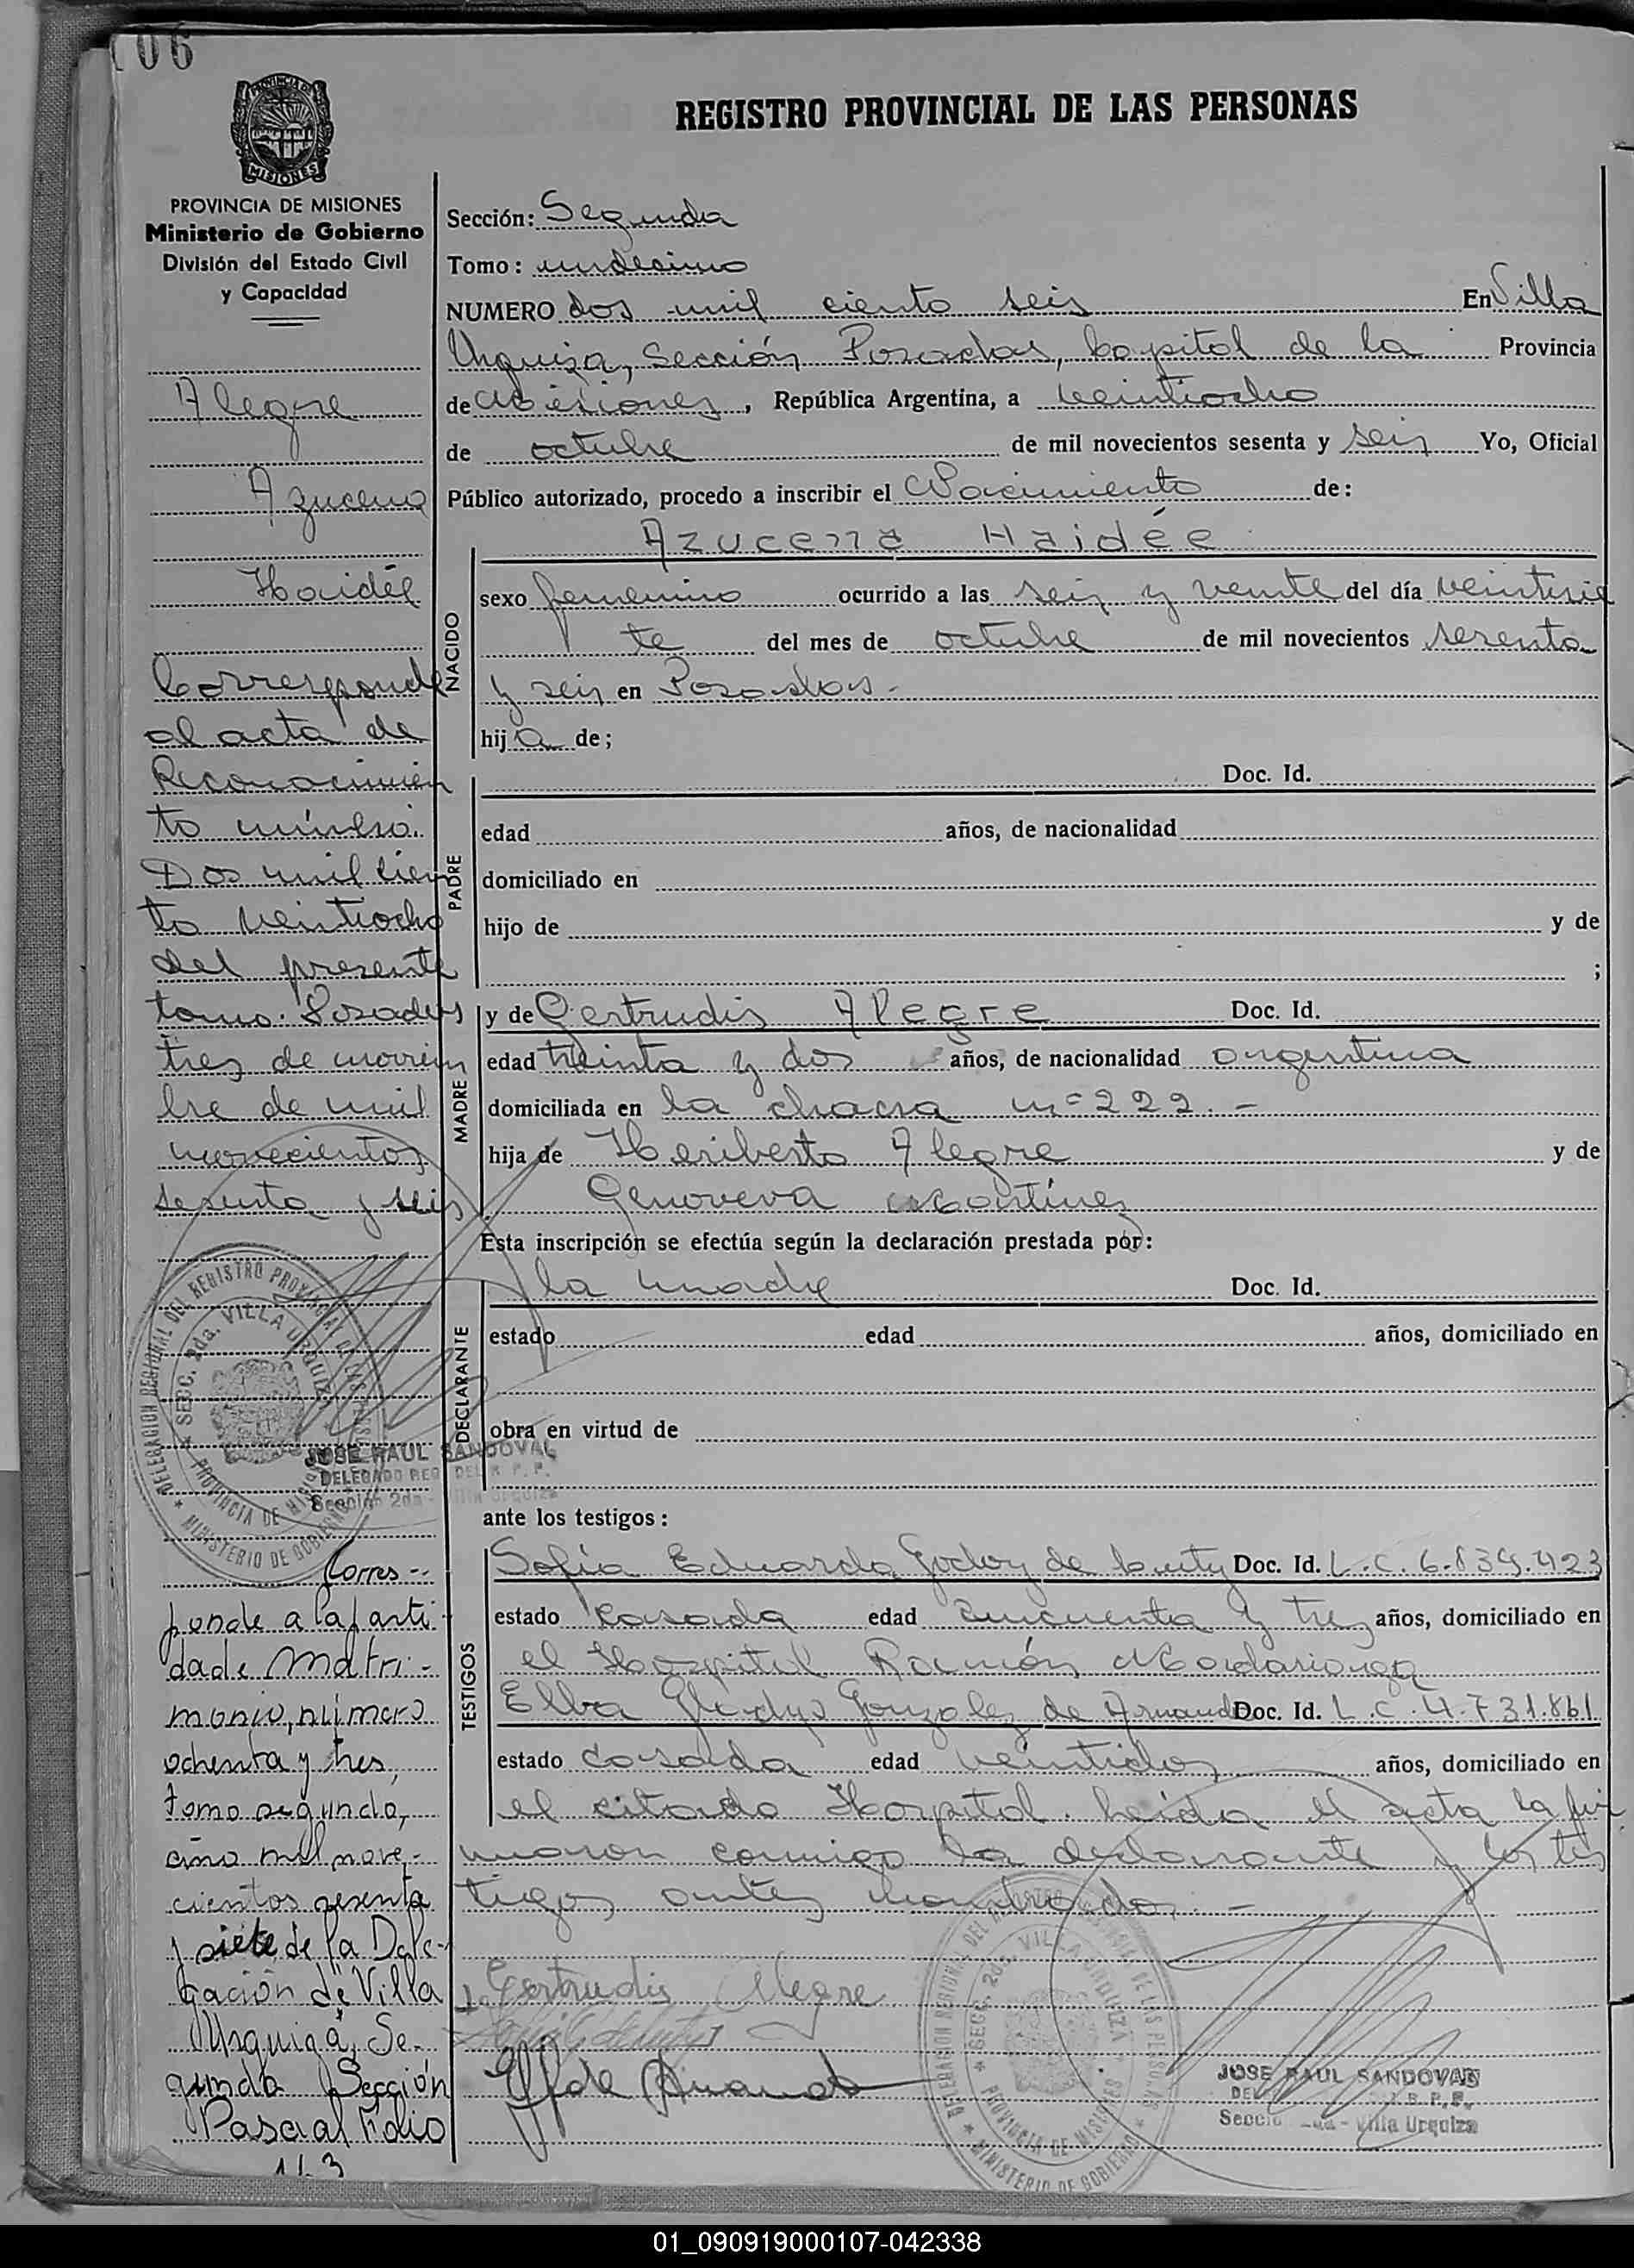 106
MISIONES
REGISTRO PROVINCIAL DE LAS PERSONAS
PROVINCIA DE MISIONES
Ministerio de Gobierno
División del Estado Civil
y Capacidad
Alegre
Azucena
Haidée
Corresponde
al acta de
Reconocimien
to número
Dos mil cien
to veintiocho
del presente
tomo. Posadas
tres de noviem
bre de mil
novecientos
sesenta y seis
DELEGACION REGIONAL DEL REGISTRO PROVINCIAL DE LAS PERSONAS
SECC. 2da. VILLA URQUIZA
PROVINCIA DE MISIONES
MINISTERIO DE GOBIERNO
JOSE RAUL SANDOVAL
DELEGADO REG. DEL R. P. P.
Sección 2da - Villa Urquiza
Corres--
ponde a la parti-
da de Matri-
monio, número
ochenta y tres,
tomo segundo,
año mil nove-
cientos sesenta
y siete de la Dele-
gación de Villa
Urquiza, Se-
gunda Sección
Folio
Sección: Segunda
Tomo: undecimo
NUMERO dos mil ciento seis En Villa
Urquiza, Sección Posadas, Capital de la Provincia
de Misiones, República Argentina, a veintiocho
de octubre de mil novecientos sesenta y seis Yo, Oficial
Público autorizado, procedo a inscribir el Nacimiento de:
Azucena Haidée
NACIDO
sexo femenino ocurrido a las seis y veinte del día veintisie
te del mes de octubre de mil novecientos sesenta
y seis en Posadas.-
hija de;
PADRE
Doc. Id.
edad años, de nacionalidad
domiciliado en
hijo de y de
;
MADRE
y de Gertrudis Alegre Doc. Id.
edad treinta y dos años, de nacionalidad argentina
domiciliada en la chacra nº 222.-
hija de Heriberto Alegre y de
Genoveva Martínez
Esta inscripción se efectúa según la declaración prestada por:
DECLARANTE
la madre Doc. Id.
estado edad años, domiciliado en
obra en virtud de
ante los testigos:
TESTIGOS
Sofía Eduarda Godoy de Doc. Id. L.C. 6.839.423
estado casada edad cincuenta y tres años, domiciliado en
el Hospital Ramón Madariaga
Elba Gladys Gonzalez de Doc. Id. L.C. 4.731.861
estado casada edad veintidos años, domiciliado en
el citado Hospital. Leida el acta la fir
maron conmigo la declarante y los tes
tigos antes nombrados.-
Gertrudis Alegre
DELEGACION REGIONAL DEL REGISTRO PROVINCIAL DE LAS PERSONAS
SECC. 2da. VILLA URQUIZA
PROVINCIA DE MISIONES
MINISTERIO DE GOBIERNO
JOSE RAUL SANDOVAL
Villa Urquiza
01_090919000107-042338